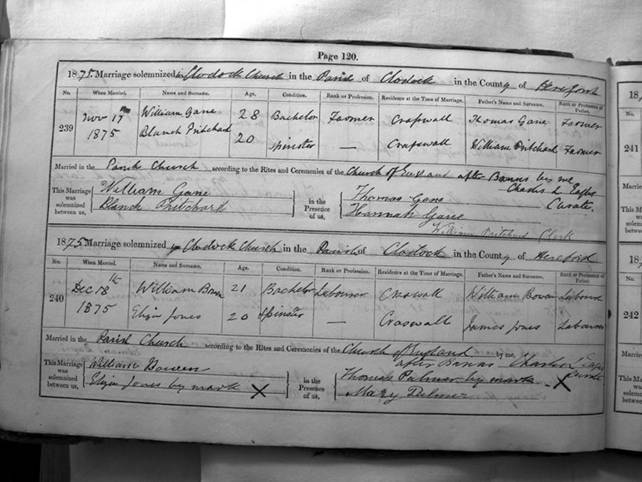 Page 120.
1875. Marriage solemnized in Clodock Church in the Parish of Clodock in the County of Hereford
No. When Married. Name and Surname. Age. Condition. Rank or Profession. Residence at the Time of Marriage. Father's Name and Surname. Rank or Profession of Father.
239 Nov 17th 1875 William Gane 28 Bachelor Farmer Craswall Thomas Gane Farmer
Blanch Pritchard 20 Spinster — Craswall William Pritchard Farmer
Married in the Parish Church according to the Rites and Ceremonies of the Church of England after Banns by me,
Charles L
Curate.
This Marriage was solemnized between us, William Gane
Blanch Pritchard
in the Presence of us, Thomas Gane
Hannah Gane
William Pritchard Clerk
1875. Marriage solemnized in Clodock Church in the Parish of Clodock in the County of Hereford
No. When Married. Name and Surname. Age. Condition. Rank or Profession. Residence at the Time of Marriage. Father's Name and Surname. Rank or Profession of Father.
240 Dec 18th 1875 William 21 Bachelor Labourer Craswall William Labourer
Eliza Jones 20 Spinster — Craswall James Jones Labourer
Married in the Parish Church according to the Rites and Ceremonies of the Church of England by me,
after Banns Charles L
Curate
This Marriage was solemnized between us, William Bowen
Eliza Jones by mark X
in the Presence of us, Thomas Palmer by mark X
Mary Palmer
18
No.
241
18
242